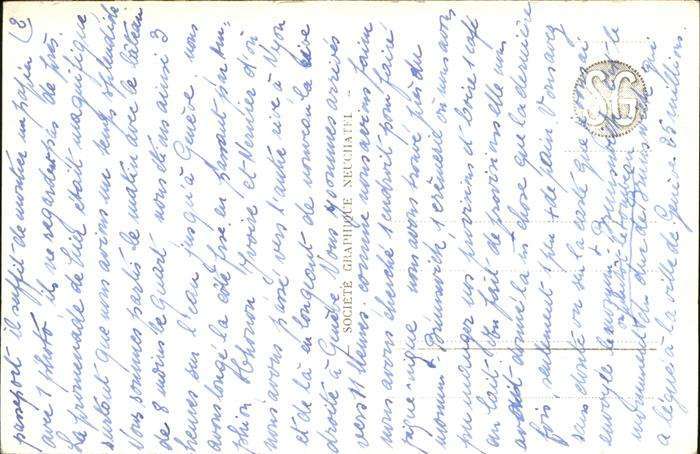 (2
passeport il suffit de montrer un papier
avec 1 photo ils ne regardent pas de près.
La promenade de hier était magnifique
surtout que nous avions un temps splendide
Nous sommes partis le matin avec le bateau
de 8 moins le quart nous étions ainsi 3
heures sur l'eau jusqu'à Genève nous
avons longé la côte en passant par
Thonon Yvoire et Nernier d'où
nous avons passé vers l'autre rive à Nyon
et de là en longeant de nouveau la rive
droite à Genève. Nous sommes arrivés
vers 11 heures. comme nous avions faim
nous avons cherché 1 endroit pour faire
pique nique nous avons trouvé près du
monum + Brunswick 1 crèmerie où nous avons
pu manger nos provisions et boire 1 café
au lait. On fait de provisions elle nous
donné la m chose que la dernière
fois seulement 1 peu + de pain. Vous avez
sans doute vu sur la carte que je vous ai
envoyée le monum + Brunswick
où est le tombeau
monument du duc de Brunswick qui
a légué à la ville de Genève 25 millions.
SOCIÉTÉ GRAPHIQUE NEUCHATEL
SG